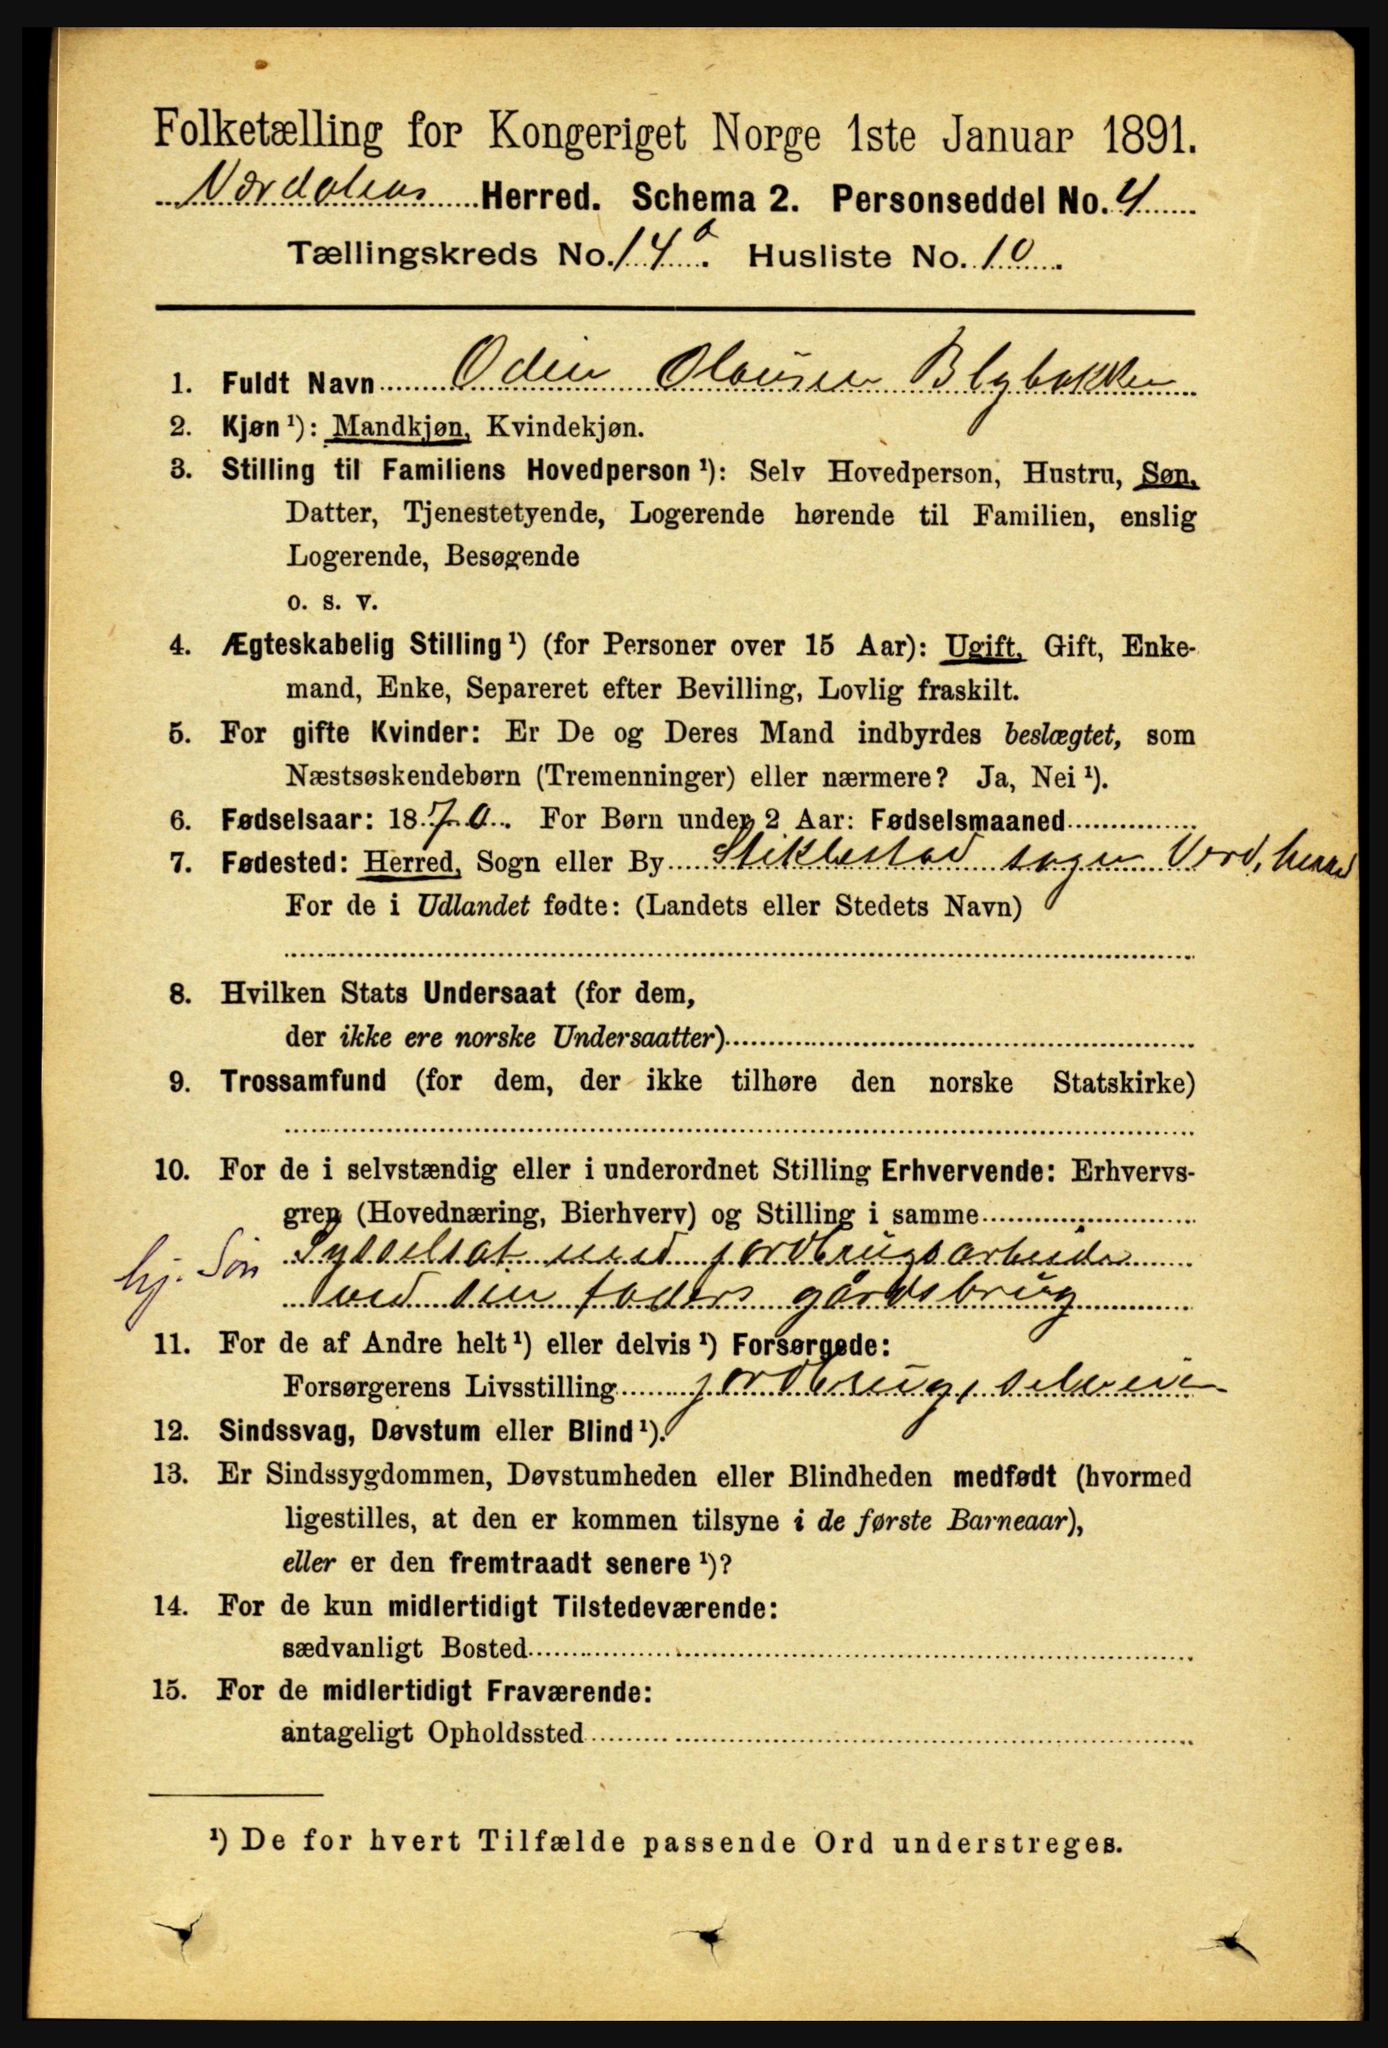 Folketælling for Kongeriget Norge 1ste Januar 1891.
Værdalens Herred. Schema 2. Personseddel No. 4
Tællingskreds No. 14a. Husliste No. 10.
1. Fuldt Navn Odin Olausen Blybakken
2. Kjøn ¹): Mandkjøn, Kvindekjøn.
3. Stilling til Familiens Hovedperson ¹): Selv Hovedperson, Hustru, Søn,
Datter, Tjenestetyende, Logerende hørende til Familien, enslig
Logerende, Besøgende
o. s. v.
4. Ægteskabelig Stilling ¹) (for Personer over 15 Aar): Ugift, Gift, Enke-
mand, Enke, Separeret efter Bevilling, Lovlig fraskilt.
5. For gifte Kvinder: Er De og Deres Mand indbyrdes beslægtet, som
Næstsøskendebørn (Tremenninger) eller nærmere? Ja, Nei ¹).
6. Fødselsaar: 1870. For Børn under 2 Aar: Fødselsmaaned
7. Fødested: Herred, Sogn eller By Stiklestad sogn Verd, herred
For de i Udlandet fødte: (Landets eller Stedets Navn)
8. Hvilken Stats Undersaat (for dem,
der ikke ere norske Undersaatter)
9. Trossamfund (for dem, der ikke tilhøre den norske Statskirke)
10. For de i selvstændig eller i underordnet Stilling Erhvervende: Erhvervs-
gren (Hovednæring, Bierhverv) og Stilling i samme
hj. Søn Sysselsat med jordbrugsarbeide
ved sin faders gårdsbrug
11. For de af Andre helt ¹) eller delvis ¹) Forsørgede:
Forsørgerens Livsstilling jordbrug, selveier
12. Sindssvag, Døvstum eller Blind ¹).
13. Er Sindssygdommen, Døvstumheden eller Blindheden medfødt (hvormed
ligestilles, at den er kommen tilsyne i de første Barneaar),
eller er den fremtraadt senere ¹)?
14. For de kun midlertidigt Tilstedeværende:
sædvanligt Bosted
15. For de midlertidigt Fraværende:
antageligt Opholdssted
¹) De for hvert Tilfælde passende Ord understreges.